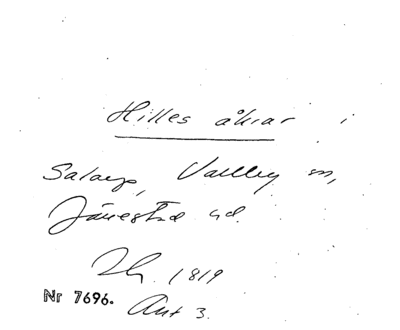 Hilles åkrar i
Salanye, Valleby sn,
Jönestad hd.
1819
Nr 7696. Ant 3.